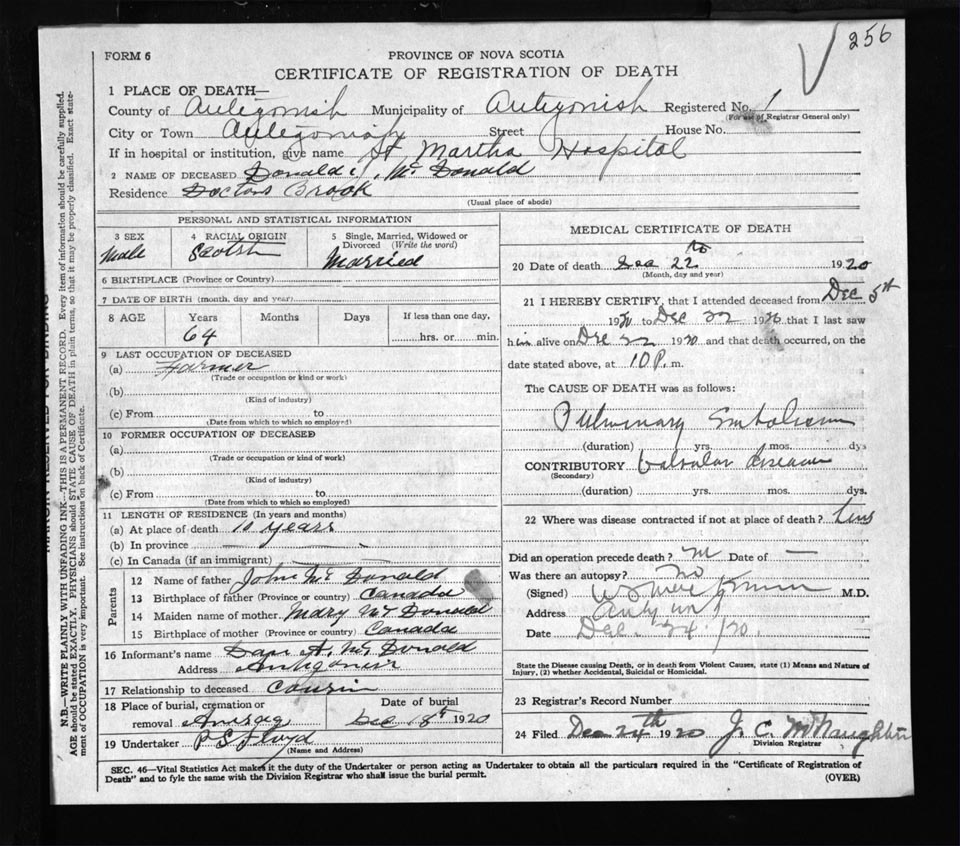 256
FORM 6
PROVINCE OF NOVA SCOTIA
CERTIFICATE OF REGISTRATION OF DEATH
1 PLACE OF DEATH—
County of Antigonish Municipality of Antigonish Registered No. 1
(For use of Registrar General only)
City or Town Antigonish Street House No.
If in hospital or institution, give name St Martha Hospital
2 NAME OF DECEASED Donald J. McDonald
Residence Doctors Brook
(Usual place of abode)
PERSONAL AND STATISTICAL INFORMATION
3 SEX
Male
4 RACIAL ORIGIN
Scotsh
5 Single, Married, Widowed or
Divorced (Write the word)
Married
6 BIRTHPLACE (Province or Country)
7 DATE OF BIRTH (month, day and year)
8 AGE Years Months Days If less than one day,
64 hrs. or min.
9 LAST OCCUPATION OF DECEASED
(a) Farmer
(Trade or occupation or kind or work)
(b)
(Kind of industry)
(c) From to
(Date from which to which so employed)
10 FORMER OCCUPATION OF DECEASED
(a)
(Trade or occupation or kind of work)
(b)
(Kind of industry)
(c) From to
(Date from which to which so employed)
11 LENGTH OF RESIDENCE (In years and months)
(a) At place of death 10 years
(b) In province —
(c) In Canada (if an immigrant) —
Parents
12 Name of father John McDonald
13 Birthplace of father (Province or country) Canada
14 Maiden name of mother Mary McDonald
15 Birthplace of mother (Province or country) Canada
16 Informant's name Dan A. McDonald
Address Antigonish
17 Relationship to deceased cousin
18 Place of burial, cremation or Date of burial
removal Arisaig Dec 1920
19 Undertaker P S Floyd
(Name and Address)
MEDICAL CERTIFICATE OF DEATH
20 Date of death Dec 22 1920
(Month, day and year)
21 I HEREBY CERTIFY, that I attended deceased from Dec 5th
1920 to Dec 22 1920 that I last saw
him alive on Dec 22 1920 and that death occurred, on the
date stated above, at 10 P. m.
The CAUSE OF DEATH was as follows:
Pulmonary Embolism
(duration) yrs. mos. dys
CONTRIBUTORY Valvular disease
(Secondary)
(duration) yrs. mos. dys.
22 Where was disease contracted if not at place of death?
Did an operation precede death? Date of —
Was there an autopsy? No
(Signed) M.D.
Address
Date Dec. 24/20
State the Disease causing Death, or in death from Violent Causes, state (1) Means and Nature of
Injury, (2) whether Accidental, Suicidal or Homicidal.
23 Registrar's Record Number
24 Filed Dec 24th 1920 J. C. McNaughton
Division Registrar
SEC. 46—Vital Statistics Act makes it the duty of the Undertaker or person acting as Undertaker to obtain all the particulars required in the "Certificate of Registration of
Death" and to fyle the same with the Division Registrar who shall issue the burial permit. (OVER)
N.B.—WRITE PLAINLY WITH UNFADING INK—THIS IS A PERMANENT RECORD. Every item of information should be carefully supplied.
AGE should be stated EXACTLY. PHYSICIANS should STATE CAUSE OF DEATH in plain terms, so that it may be properly classified. Exact state-
ment of OCCUPATION is very important. See instructions on back of Certificate.